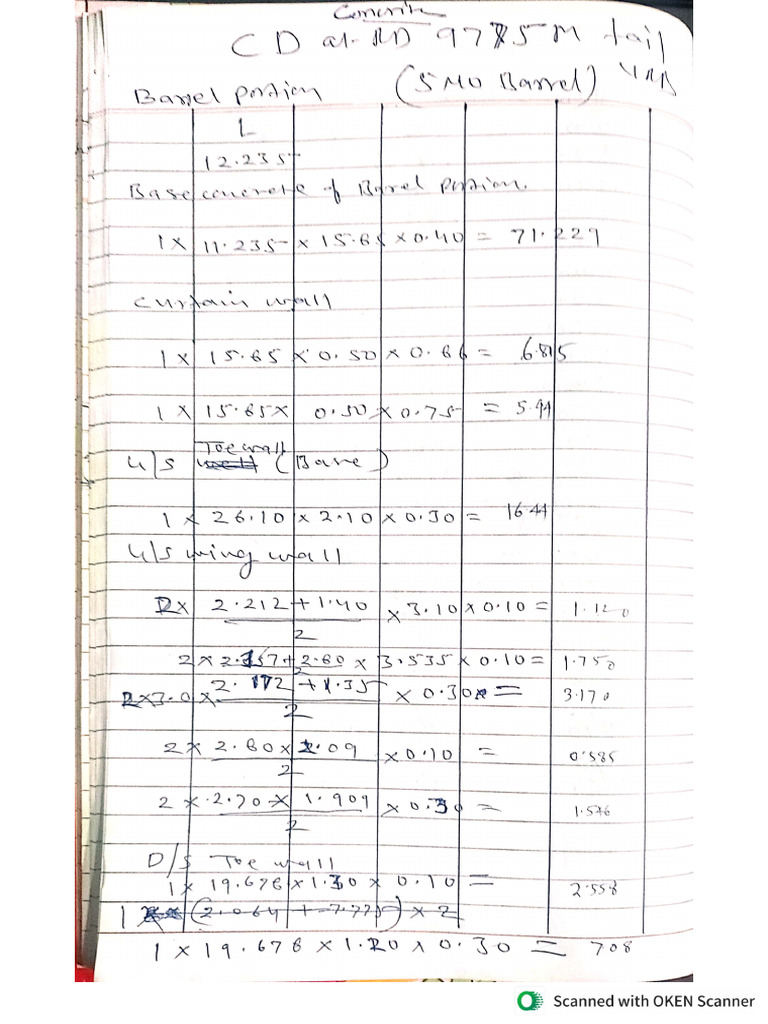 Concrete
CD at RD 9775M tail
Barrel portion (5 NO Barrel)
L
12.235
Base concrete of Barel portion.
1 x 11.235 x 15.85 x 0.40 = 71.229
Curtain wall
1 x 15.85 x 0.50 x 0.86 = 6.815
1 x 15.85 x 0.50 x 0.75 = 5.94
U/S Toe wall (Base)
1 x 26.10 x 2.10 x 0.30 = 16.44
U/S wing wall
2 x 2.212 + 1.40 / 2 x 3.10 x 0.10 = 1.120
2 x 2.357 + 2.60 / 2 x 3.535 x 0.10 = 1.750
2 x 3.0 x 2.172 + 1.35 / 2 x 0.30 = 3.170
2 x 2.80 x 2.09 / 2 x 0.10 = 0.585
2 x 2.70 x 1.909 / 2 x 0.30 = 1.546
D/S Toe wall
1 x 19.678 x 1.30 x 0.10 = 2.558
1 x 19.678 x 1.20 x 0.30 = 7.08
Scanned with OKEN Scanner